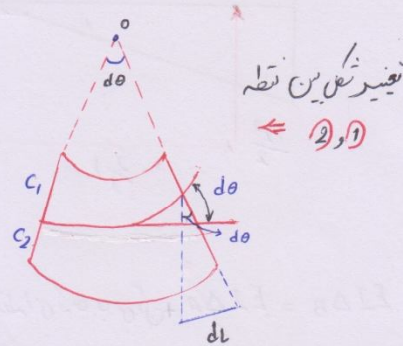 O
dθ
تغییر شکل بین نقطه
⇐ 2 و 1
C₁
dθ
C₂
dθ
dL